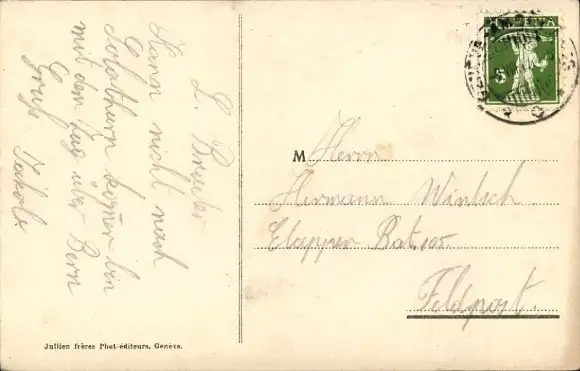 L. Bruder
Kann nicht nach
Solothurn kommen bin
mit dem Zug über Bern
Gruß Jakob.
M Herrn
Hermann Wintsch.
Etappen Bat. 105.
Feldpost.
Jullien frères Phot-éditeurs, Genève.